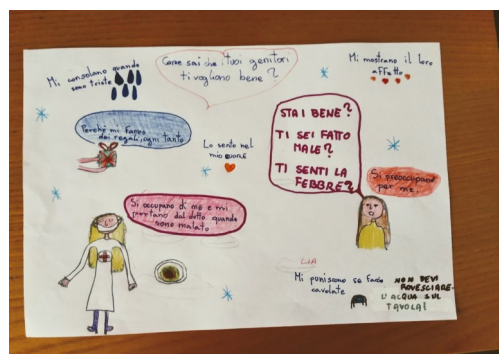 Come sai che i tuoi genitori
ti vogliono bene?
Mi consolano quando
sono triste
Mi mostrano il loro
affetto
Perché mi fanno
dei regali, ogni tanto
Lo sento nel
mio cuore
STAI BENE?
TI SEI FATTO
MALE?
TI SENTI LA
FEBBRE?
Si preoccupano
per me.
Si occupano di me e mi
portano dal dott quando
sono malato
LIA
Mi puniscono se faccio
cavolate
NON DEVI
ROVESCIARE
L'ACQUA SUL
TAVOLA!